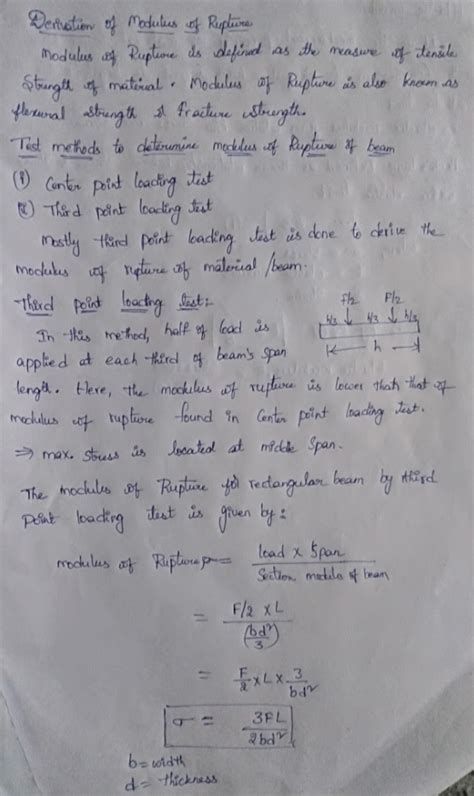 Derivation of Modulus of Rupture
Modulus of Rupture is defined as the measure of tensile
Strength of material. Modulus of Rupture is also known as
flexural strength & fracture strength.
Test methods to determine modulus of Rupture of beam
(1) Center point loading test
(2) Third point loading test
Mostly third point loading test is done to derive the
modulus of rupture of material/beam.
Third point loading test:-
F/2 F/2
h/3 h/3 h/3
h
In this method, half of load is
applied at each third of beam's span
length. Here, the modulus of rupture is lower than that of
modulus of rupture found in Center point loading test.
⇒ max. stress is located at middle span.
The modulus of Rupture for rectangular beam by third
point loading test is given by:
modulus of Rupture = load × Span
Section modulus of beam
= F/2 × L
(bd²/3)
= F/2 × L × 3/bd²
σ = 3FL/2bd²
b = width
d = thickness